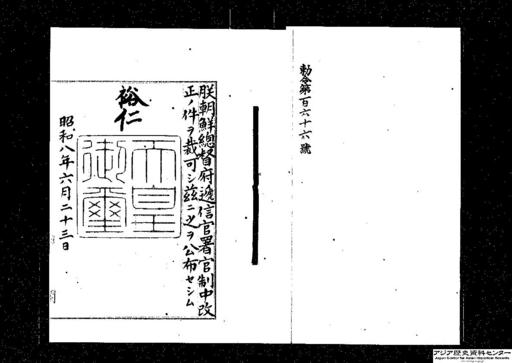 勅令第百六十六號
朕朝鮮總督府遞信官署官制中改
正ノ件ヲ裁可シ玆ニ之ヲ公布セシム
裕仁
天皇
御璽
昭和八年六月二十三日
アジア歴史資料センター
Japan Center for Asian Historical Records